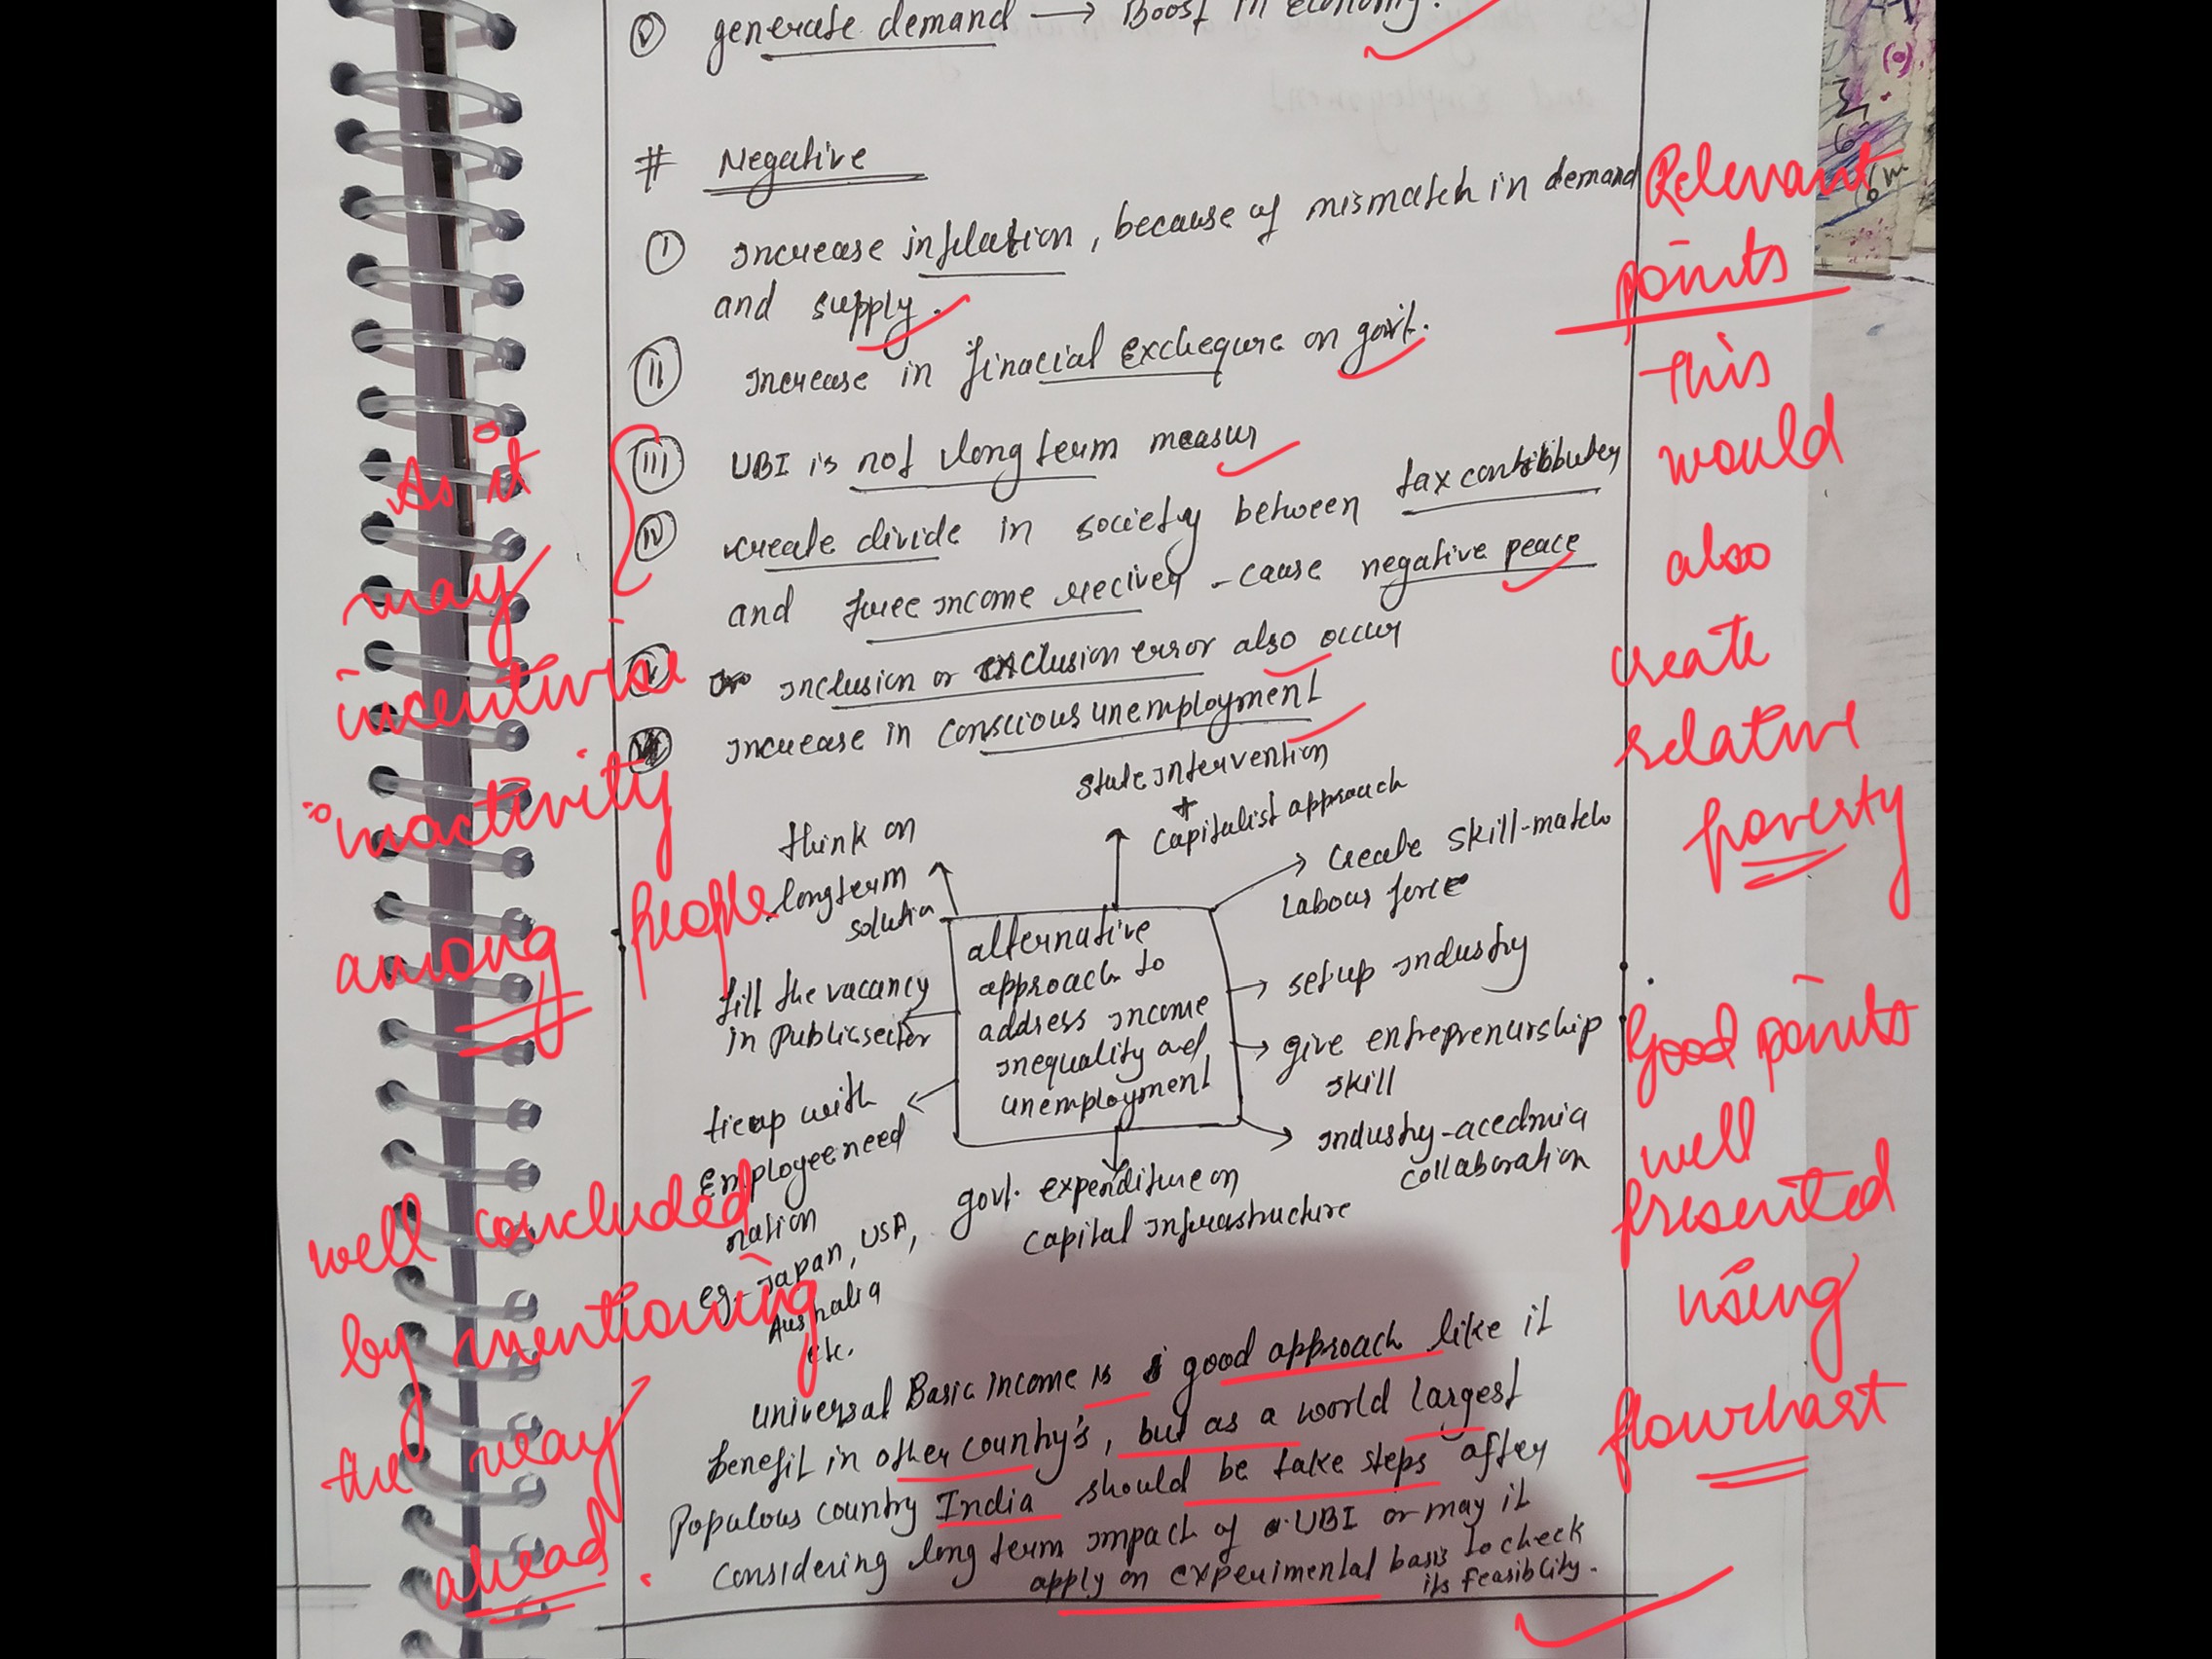 (v) generate demand → Boost in economy.
# Negative
(I) Increase inflation, because of mismatch in demand
and supply.
(II) Increase in finacial exchequre on govt.
(III) UBI is not long term measur
(IV) create divide in society between tax contributer
and free income reciver - cause negative peace
(V) Inclusion or exclusion error also occur
Increase in conscious unemployment
State intervention
+
Capitalist approach
think on
long term
solution
create skill-match
Labour force
alternative
approach to
address income
inequality and
unemployment
fill the vacancy
in Public sector
setup industry
give entreprenurship
skill
tieup with
Employee need
nation
eg - Japan, USA,
Australia
etc.
industry-acedmia
collaboration
govt. expenditure on
capital infrastructure
Universal Basic income is good approach like it
benefit in other country's, but as a world largest
Populous country India should be take steps after
considering long term impact of UBI or may it
apply on experimental basis to check
its feasiblity.
Relevant
points
This
would
also
create
relative
poverty
As it
may
incentivise
inactivity
among people
Good points
well
presented
using
flowchart
well concluded
by mentioning
the way
ahead.